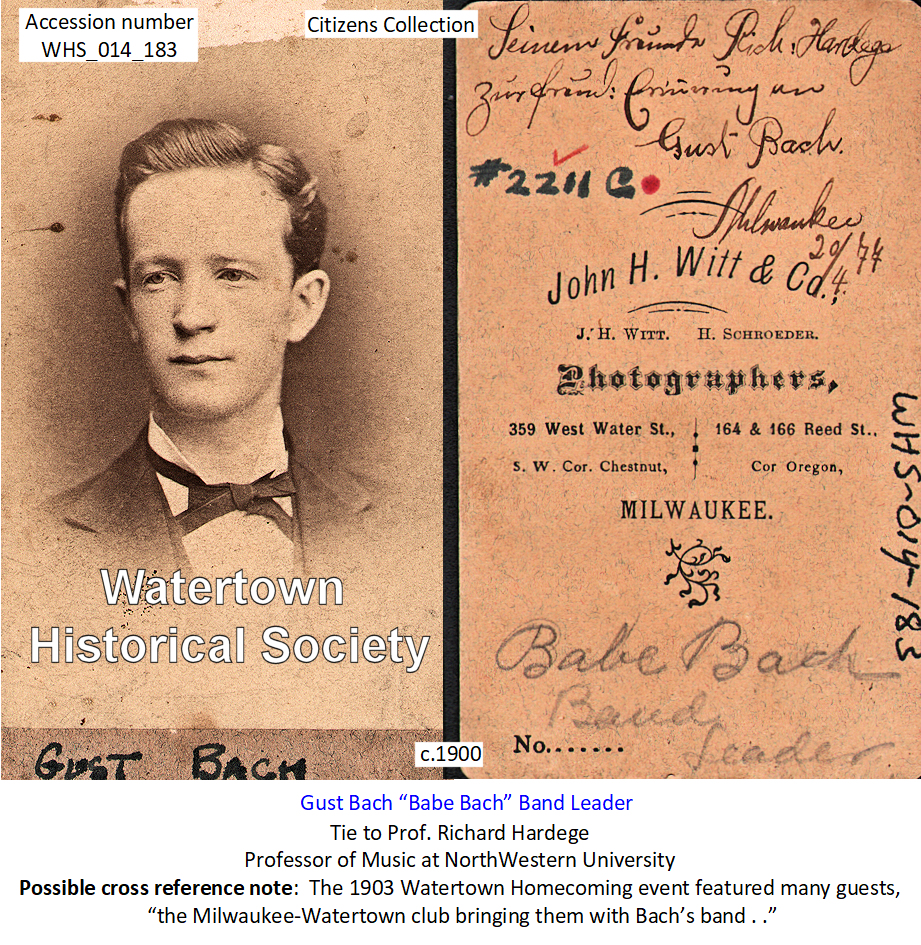 Accession number
WHS_014_183
Citizens Collection
Watertown
Historical Society
GUST BACH
c.1900
Seinem Freunde Rich. Hardege
zur freund: Erinnrung an
Gust Bach.
#2211 C
Milwaukee
20/4. 77
John H. Witt & Co.,
J. H. WITT. H. SCHROEDER.
Photographers,
359 West Water St., 164 & 166 Reed St.,
S. W. Cor. Chestnut, Cor Oregon,
MILWAUKEE.
WHS-014-183
Babe Bach
Band
Leader
No.......
Gust Bach “Babe Bach” Band Leader
Tie to Prof. Richard Hardege
Professor of Music at NorthWestern University
Possible cross reference note: The 1903 Watertown Homecoming event featured many guests,
“the Milwaukee-Watertown club bringing them with Bach’s band . .”